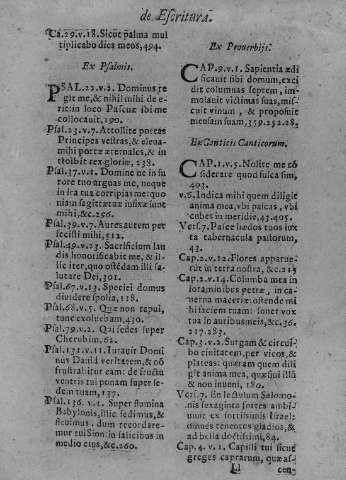 de Escritura.
Ca.29.v.18. Sicut palma mul
tiplicabo dies meos, 494.
Ex Psalmis.
PSAL. 22. v. 2. Dominus re
git me, & nihil mihi de e-
rit: in loco Pascuæ ibi me
collocauit, 190.
Psal.23.v.7. Attollite portas
Principes vestras, & eleua-
mini portæ æternales, & in
troibit rex gloriæ, 238.
Psal.37.v.1. Domine ne in fu
rore tuo arguas me, neque
in ira tua corripias me: quo
niam sagittæ tuæ infixæ sunt
mihi, &c. 256.
Psal.39.v.7. Aures autem per
fecisti mihi, 512.
Psal.49.v.23. Sacrificium lau
dis honorificabit me, & il-
lic iter, quo ostẽdam illi sa
lutare Dei, 301.
Psal.67.v.13. Speciei domus
diuidere spolia, 118.
Psal.68.v.5. Quæ non rapui,
tunc exoluebam, 430.
Psal.79.v.2. Qui sedes super
Cherubim, 62.
Psal.131.v.11. Iurauit Domi
nus Dauid veritatem, & nõ
frustrabitur eam: de fructu
ventris tui ponam super se-
dem tuam, 137.
Psal.136. v.1. Super flumina
Babylonis, illic sedimus, &
fleuimus, dum recordare-
mur tui Sion: in salicibus in
medio eius, &c. 260.
Ex Prouerbijs.
CAP. 9. v. 1. Sapientia ædi
ficauit sibi domum, exci
dit columnas septem, im-
molauit victimas suas, mis-
cuit vinum, & proposuit
mensam suam, 359. 252. 28.
Ex Canticis Canticorum.
CAP. 1. v. 5. Nolite me cõ
siderare quod fusca sim,
403.
v.6. Indica mihi quem diligit
anima mea, vbi pascas, vbi
cubes in meridie, 43. 405.
Vers.7. Pasce hædos tuos iux
ta tabernacula pastorum,
43.
Cap.2.v.12. Flores apparue-
runt in terra nostra, &c. 215
Cap.2.v.14. Columba mea in
foraminibus petræ, in ca-
uerna maceriæ: ostende mi
hi faciem tuam: sonet vox
tua in auribus meis, &c. 36.
217. 283.
Cap.3.v.2. Surgam & circui-
bo ciuitatem, per vicos, &
plateas: quæram quem dili
git anima mea, quæsiui illũ
& non inueni, 180.
Vers.7. En lectulum Salomo-
nis sexaginta fortes ambi-
unt ex fortissimis Israel:
omnes tenentes gladios, &
ad bella doctissimi, 84.
Cap. 4. v. 1. Capilli tui sicut
greges caprarum, quæ as-
Ll
cen-